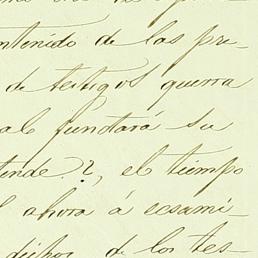 ntenido de las pre-
de testigos querra
al fundará su
tiende?, el tiempo
l ahora á ecsami-
dichos de los tes-